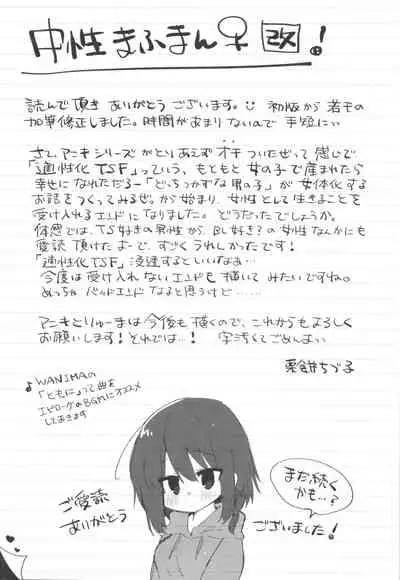 中性まふまん♀改!
読んで頂きありがとうございます。初版から若干の
加筆修正しました。時間があまりないので手短に…
さて、アニキシリーズがとりあえずオチついたぜって感じで
「適性化TSF」っていう、もともと女の子で産まれたら
幸せになれただろー「どっちつかずな男の子」が女体化する
お話をつくってみるぜっから始まり、女性として生きることを
受け入れるエンドになりました。どうだったでしょうか。
体感では、TS好きの男性から、BL好き?の女性なんかにも
愛読頂けたよーで、すごくうれしかったです!
「適性化TSF」浸透するといいなぁ…
今度は受け入れないエンドも描いてみたいですね。
めっちゃバッドエンドなると思うけど……
アニキとりゅーまは今後も描くので、これからもよろしく
お願いします!それでは…! 字汚くてごめんよ…
栗餅ちづ子
♪WANIMAの
「ともに」って曲を
エピローグのBGMにオススメ
しておきます
ご愛読
ありがとう
ございました!
また続く
かも…?